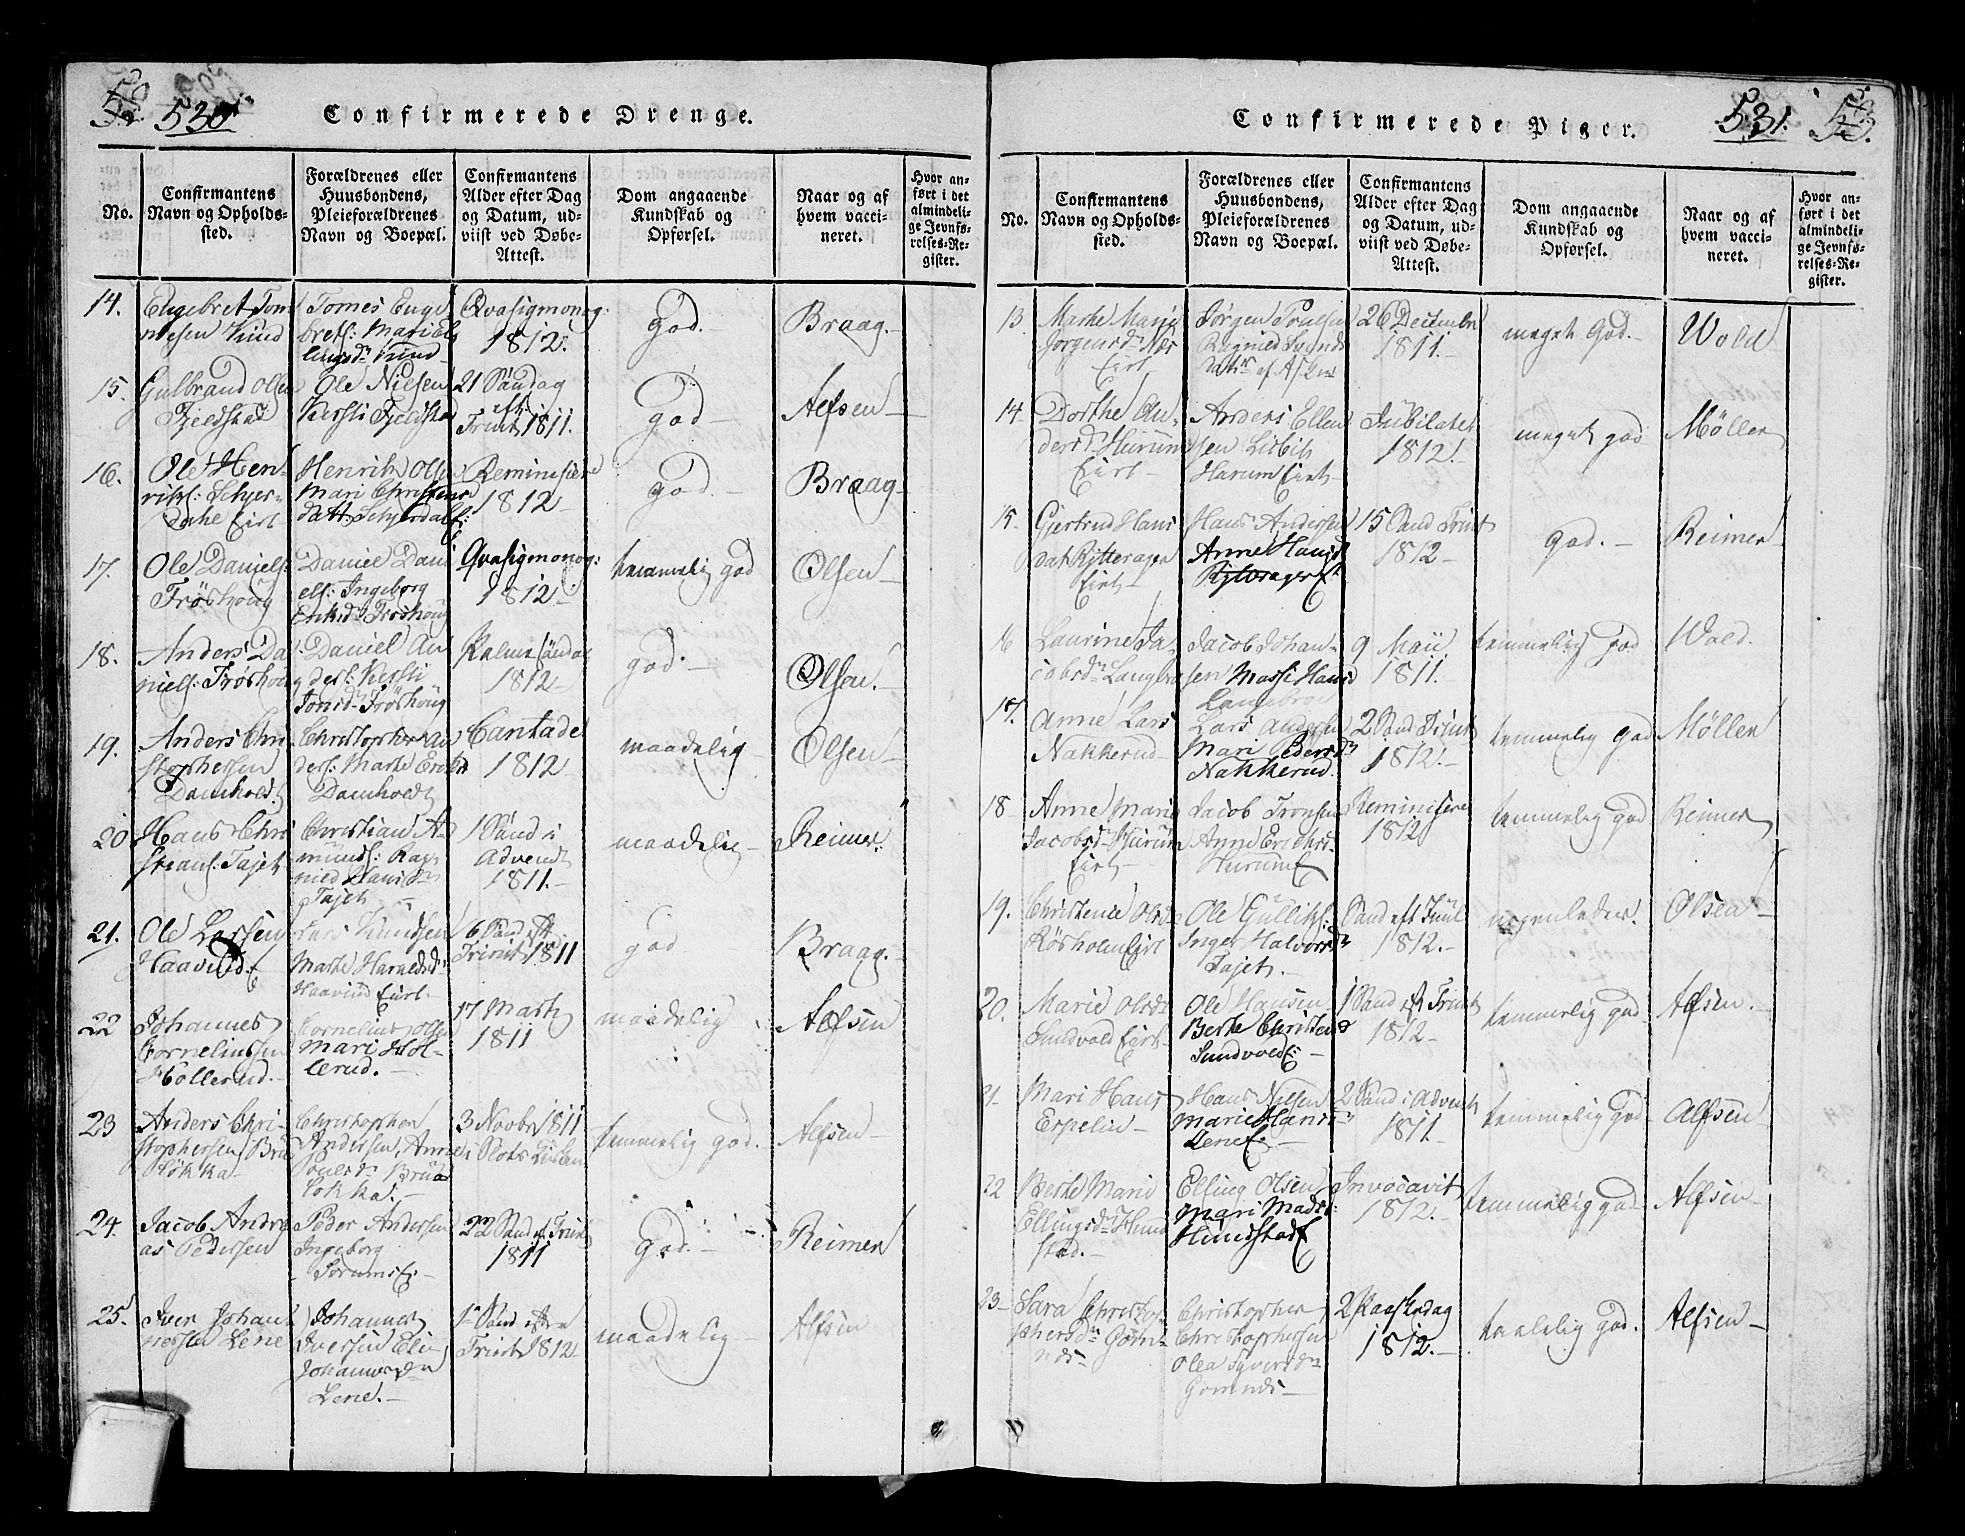 530
Confirmerede Drenge.
No.
Confirmantens
Navn og Opholds-
sted.
Forældrenes eller
Huusbondens,
Pleieforældrenes
Navn og Boepæl.
Confirmantens
Alder efter Dag
og Datum, ud-
viist ved Døbe-
Attest.
Dom angaaende
Kundskab og
Opførsel.
Naar og af
hvem vacci-
neret.
Hvor an-
ført i det
almindeli-
ge Jevnfø-
relses-Re-
gister.
14.
Engebret Tom
mesen Kind
Tomes Enge
brets: Mari El
lingsdr Kind
Qvasigmonog:
1812.
God.
Braag.
15.
Gulbrand Olsen
Fjeldstad
Ole Nielsen
Kersti Fjeldstad
21 Søndag
eft.
Trinit 1811.
God
Alfsen
16.
Ole Hen-
riks: Schjer-
dahl Eiet
Henrik Olsen
Mari Christens
datt. Schjerdal E:
Reminiscere
1812
god.
Braag
17.
Ole Daniels:
Frøshoug
Daniel Dani
els: Ingeborg
Eriksd: Frøshoug
Qvasigmonog:
1812
temmelig god
Olsen
18.
Anders Da
niels: Frøshoug
Daniel An
ders: Kersti
Jonsdr Frøshoug
Palme søndag
1812
god.
Olsen.
19.
Anders Chri
stophersen
Damholdt
Christopher An
ders: Marthe Erichsd
Damholdt
Cantade
1812
maadelig
Olsen
20
Hans Chri
stians: Tajet
Christian A
munds: Rag
nild Hansdr
Tajet
1 Sønd i
Advendt
1811.
maadelig
Reimer.
21.
Ole Larsen
Haavind E
Lars Knudsen
Marthe Haraldsd:
Haavind Eiet.
16 Sønd eft
Trinit 1811
god
Braag.
22
Johannes
Corneliussen
Hollerud.
Cornelius Olsen
Mari Hol-
lerud.
17 Marts
1811
maadelig
Alfsen
23
Anders Chri-
stophersen Bru
løkka
Christopher
Andersen, Anne
Bru
løkka.
3 Novbr 1811
i Slots Kirken
temmelig god.
Alfsen
24.
Jacob Andre
as Pedersen
Peder Andersen
Ingeborg
Sørums E:
22 Sønd ef. Trinit
1811
God.
Reimer
25.
Iver Johan
nessen Lene
Johannes
Iversen Eli
Johannesdr
Lene.
1 Sønd efter
Trinit 1812
maadelig
Alfsen
Confirmerede Piger.
531.
No.
Confirmantens
Navn og Opholds-
sted.
Forældrenes eller
Huusbondens,
Pleieforældrenes
Navn og Boepæl.
Confirmantens
Alder efter Dag
og Datum, ud-
viist ved Døbe-
Attest.
Dom angaaende
Kundskab og
Opførsel.
Naar og af
hvem vacci-
neret.
Hvor an-
ført i det
almindeli-
ge Jevnfø-
relses-Re-
gister.
13.
Marthe Marie
Jørgensdr
Eiet
Jørgen
26 Decembr
1811.
meget God.
Wold
14.
Dorthe An-
dersdr Hurum
Eiet
Anders Ellen
sen Lisbit
Harum Eiet
Jubilate
1812.
meget god
Møller
15
Gjertrud Hans
dat Rytteragen
Eiet
Hans Andersen
Anne Hansd
Rytteragen Et
15 Sønd Trinit
1812
God.
Reimer
16
Laurine Ja-
cobsdr Langbra
Jacob Johan-
sen Massi Hansd
Langbroe
9 Maii
1811.
temmelig god
Wold.
17.
Anne Lars
Nakkerud
Lars Andersen
Mari Pedersdr
Nakkerud.
2 Sønd Trinit
1812.
temmelig god
Møller
18
Anne Marie
Jacobsdr Hurum
Eiet
Jacob Tronsen
Anne Erichsd
Hurum E
Reminiscere
1812
temmelig god
Reimer
19.
Christence Olsdr
Røsholm Eiet
Ole Gulliks:
Inger Halvorsdr
Tajet.
Sønd eft Juul
1812.
nogenledes.
Olsen
20.
Marie Olsdr
Sundvold Eiet
Ole Hansen
Berthe Christensd
Sundvold E:
1 Sønd eft Trinit
1812
temmelig god
Alfsen.
21
Mari Hans
Espelin
Hans Nilsen
Marie Hansdr
Lene E:
2 Sønd i Advent
1811.
temmelig god
Alfsen
22
Berthe Marie
Ellingsdr Hund
stad.
Elling Olsen
Mari Mads:
Hundstad E
Invocavit
1812.
temmelig god
Alfsen
23
Sara Christop
hersdr Gom-
nds
Christopher
Christophersen
Olea Syversdr
Gomnds
2 Paaskedag
1812.
taalelig god.
Alfsen